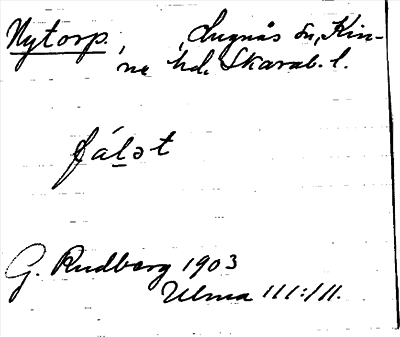 Nytorp, , Lugnås sn, Kin-
ne hd. Skarab. l.
fáḻət
G. Rudberg 1903
Ulma 111:111.